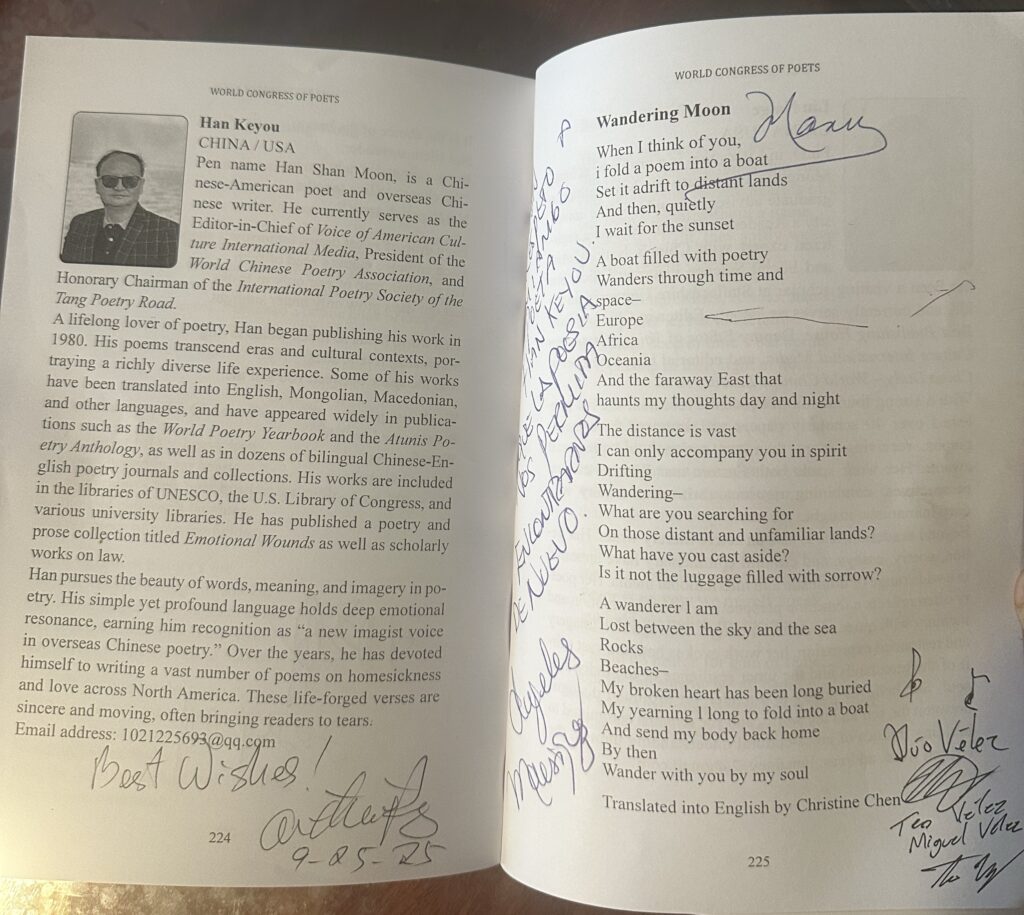 WORLD CONGRESS OF POETS
Han Keyou
CHINA / USA
Pen name Han Shan Moon, is a Chi-
nese-American poet and overseas Chi-
nese writer. He currently serves as the
Editor-in-Chief of Voice of American Cul-
ture International Media, President of the
World Chinese Poetry Association, and
Honorary Chairman of the International Poetry Society of the
Tang Poetry Road.
A lifelong lover of poetry, Han began publishing his work in
1980. His poems transcend eras and cultural contexts, por-
traying a richly diverse life experience. Some of his works
have been translated into English, Mongolian, Macedonian,
and other languages, and have appeared widely in publica-
tions such as the World Poetry Yearbook and the Atunis Po-
etry Anthology, as well as in dozens of bilingual Chinese-En-
glish poetry journals and collections. His works are included
in the libraries of UNESCO, the U.S. Library of Congress, and
various university libraries. He has published a poetry and
prose collection titled Emotional Wounds as well as scholarly
works on law.
Han pursues the beauty of words, meaning, and imagery in po-
etry. His simple yet profound language holds deep emotional
resonance, earning him recognition as “a new imagist voice
in overseas Chinese poetry.” Over the years, he has devoted
himself to writing a vast number of poems on homesickness
and love across North America. These life-forged verses are
sincere and moving, often bringing readers to tears.
Email address: 1021225693@qq.com
Best Wishes!
9-25-25
224
WORLD CONGRESS OF POETS
Wandering Moon
When I think of you,
i fold a poem into a boat
Set it adrift to distant lands
And then, quietly
I wait for the sunset
A boat filled with poetry
Wanders through time and
space–
Europe
Africa
Oceania
And the faraway East that
haunts my thoughts day and night
The distance is vast
I can only accompany you in spirit
Drifting
Wandering–
What are you searching for
On those distant and unfamiliar lands?
What have you cast aside?
Is it not the luggage filled with sorrow?
A wanderer l am
Lost between the sky and the sea
Rocks
Beaches–
My broken heart has been long buried
My yearning l long to fold into a boat
And send my body back home
By then
Wander with you by my soul
Translated into English by Christine Chen
225
POETA AMIGO
HAN KEYOU.
QUE LA POESIA
NOS PERMITA
ENCONTRARNOS
DE NUEVO.
Dúo Vélez
Teo Vélez
Miguel Vélez